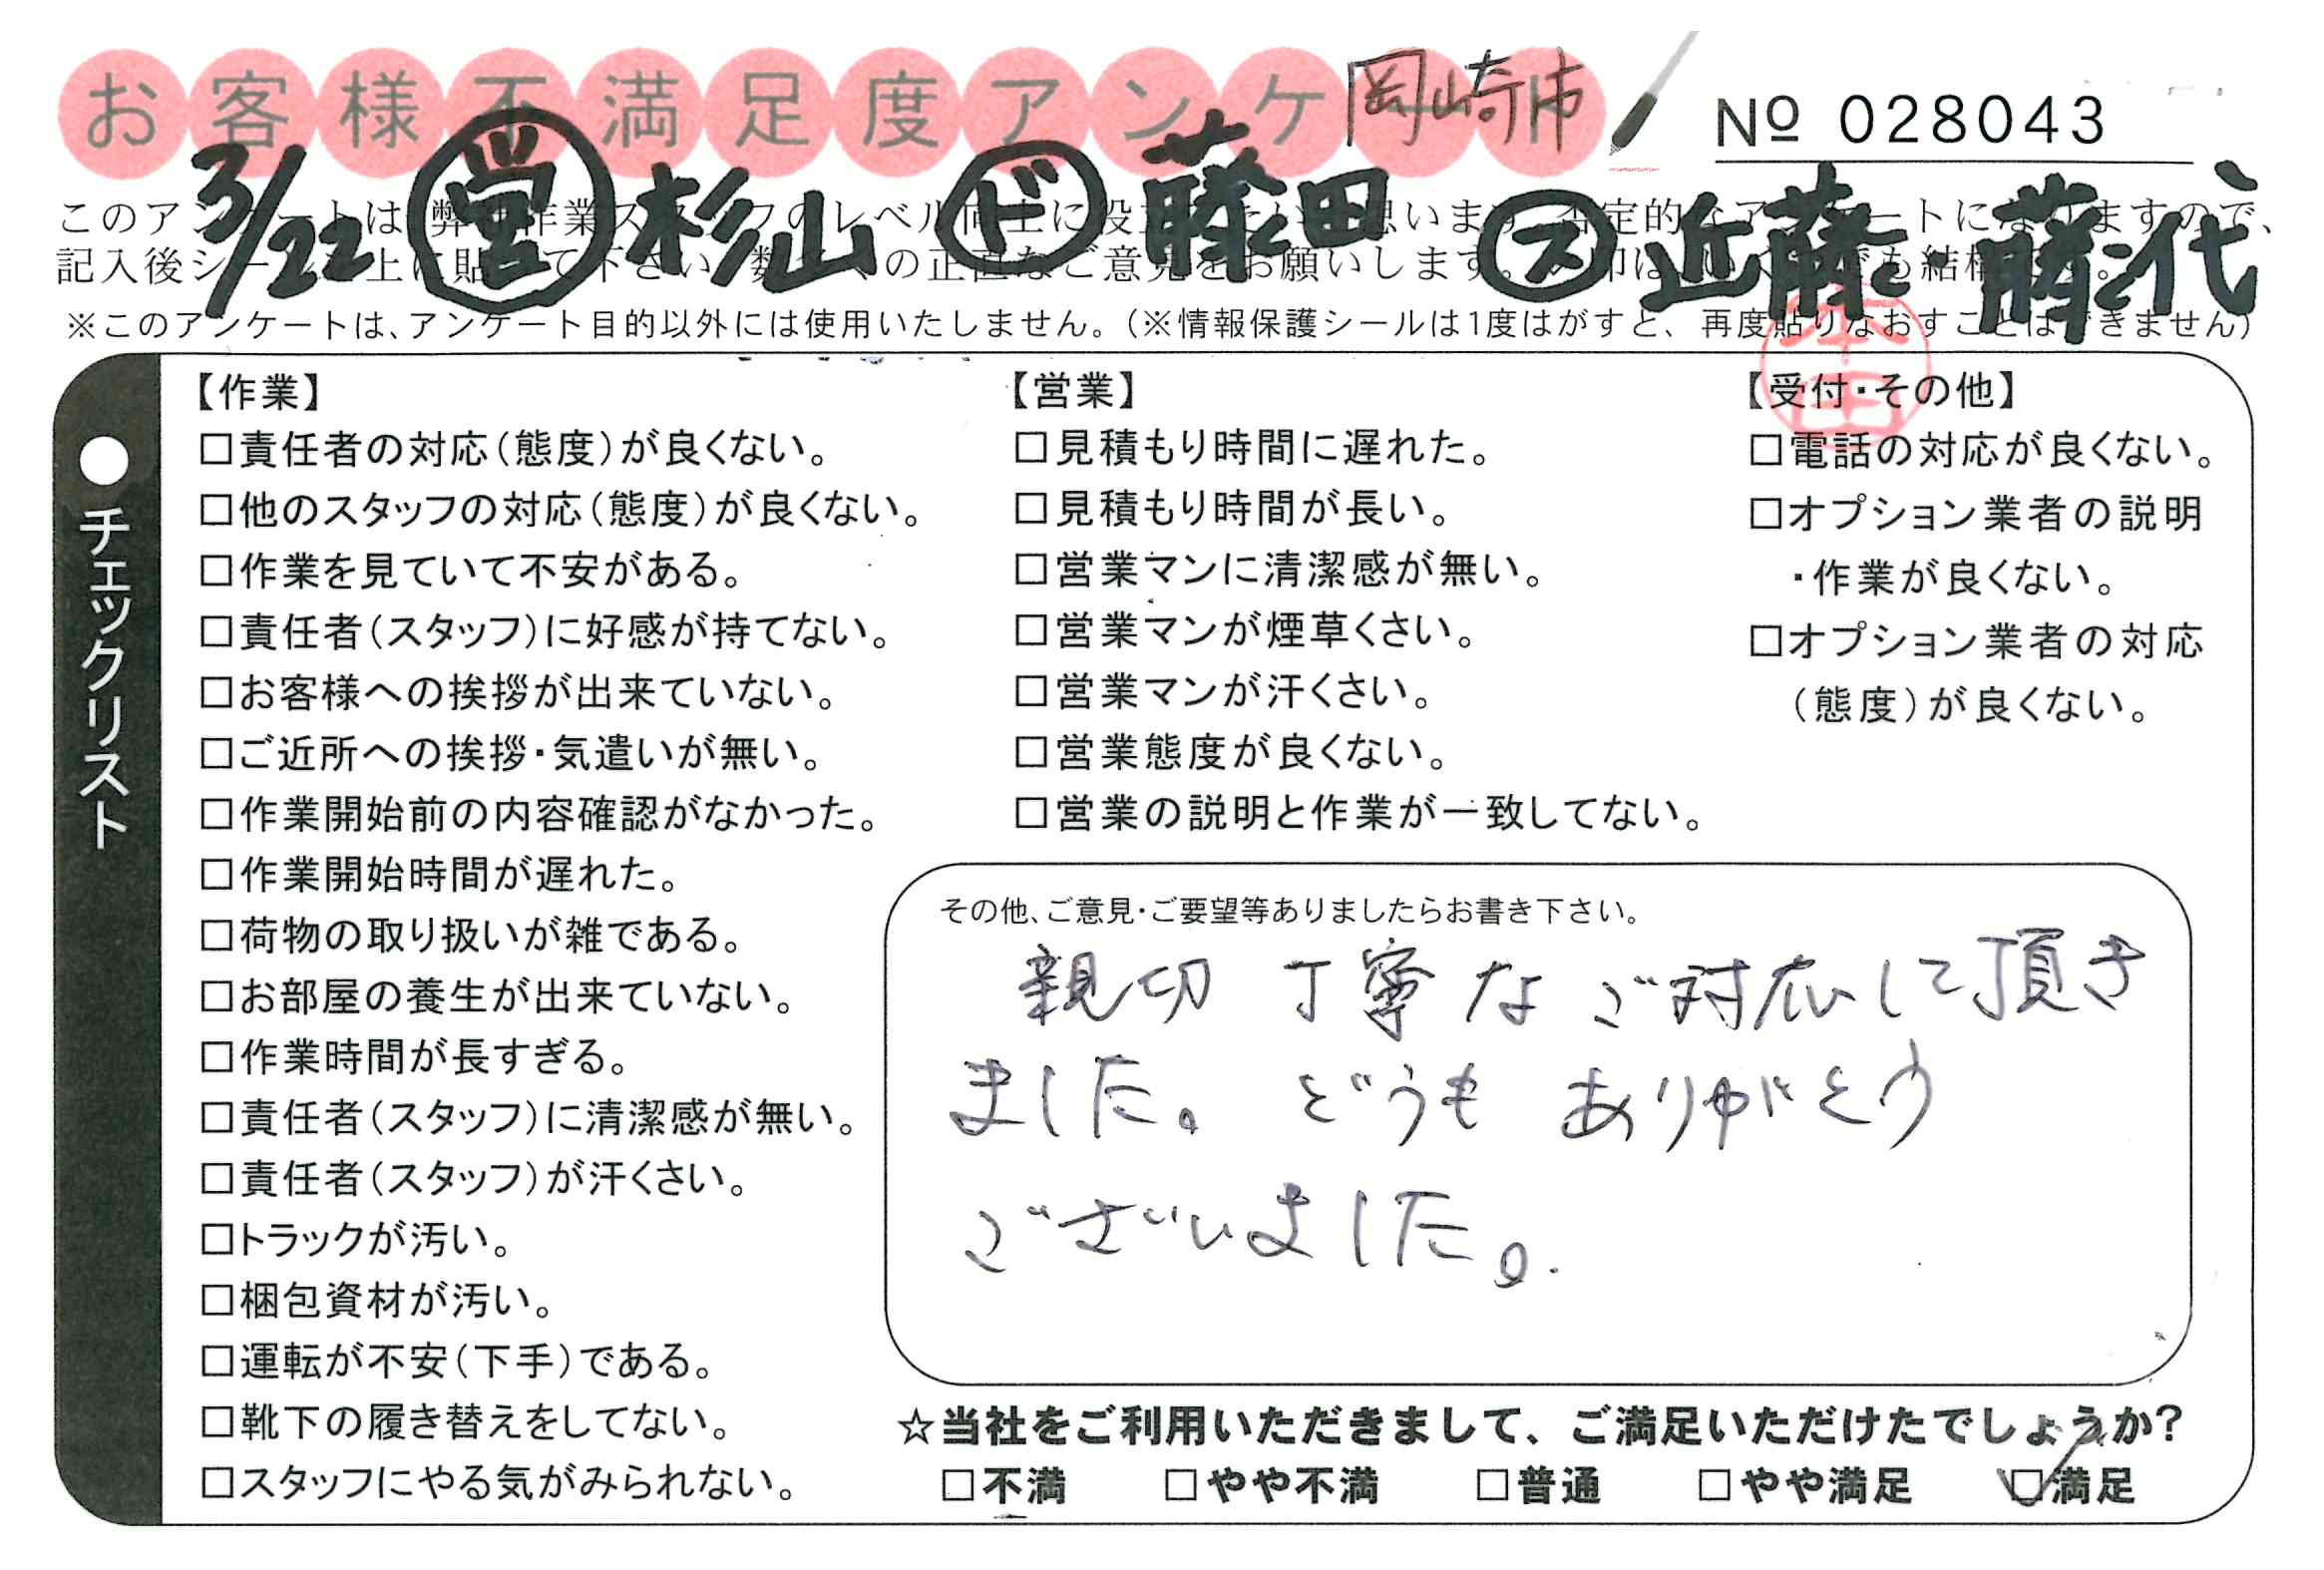 お客様不満足度アンケート
岡崎市
№ 028043
3/22 営 杉山 ド 藤田 ス 近藤・藤代
このアンケートは、弊社作業スタッフのレベル向上に役立てたいと思います。否定的なアンケートになりますので、
記入後シールを上に貼って下さい。数多くの正直なご意見をお願いします。
※このアンケートは、アンケート目的以外には使用いたしません。（※情報保護シールは1度はがすと、再度貼りなおすことはできません）
本田
●チェックリスト
【作業】
□責任者の対応（態度）が良くない。
□他のスタッフの対応（態度）が良くない。
□作業を見ていて不安がある。
□責任者（スタッフ）に好感が持てない。
□お客様への挨拶が出来ていない。
□ご近所への挨拶・気遣いが無い。
□作業開始前の内容確認がなかった。
□作業開始時間が遅れた。
□荷物の取り扱いが雑である。
□お部屋の養生が出来ていない。
□作業時間が長すぎる。
□責任者（スタッフ）に清潔感が無い。
□責任者（スタッフ）が汗くさい。
□トラックが汚い。
□梱包資材が汚い。
□運転が不安（下手）である。
□靴下の履き替えをしてない。
□スタッフにやる気がみられない。
【営業】
□見積もり時間に遅れた。
□見積もり時間が長い。
□営業マンに清潔感が無い。
□営業マンが煙草くさい。
□営業マンが汗くさい。
□営業態度が良くない。
□営業の説明と作業が一致してない。
【受付・その他】
□電話の対応が良くない。
□オプション業者の説明
・作業が良くない。
□オプション業者の対応
（態度）が良くない。
その他、ご意見・ご要望等ありましたらお書き下さい。
親切 丁寧な ご対応して頂き
ました。どうも ありがとう
ございました。
☆当社をご利用いただきまして、ご満足いただけたでしょうか？
□不満 □やや不満 □普通 □やや満足 ☑満足